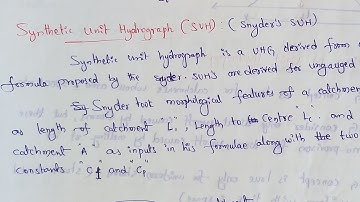 Synthetic Unit Hydrograph (SUH): (Snyder's SUH)
Synthetic unit hydrograph is a UHG derived from
formula proposed by the snyder. SUH's are derived for ungauged
Snyder took morphological features of a catchment
as length of catchment "L", Length to Centre "Lc" and
catchment "A" as inputs in his formulae along with the two
constants "Ct" and "Cp"